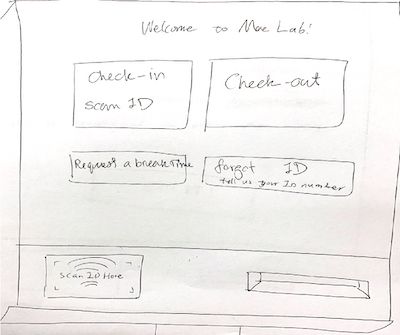 Welcome to Mac Lab!
Check-in
scan ID
Check-out
Request a break Time
forgot ID
tell us your ID number
Scan ID Here